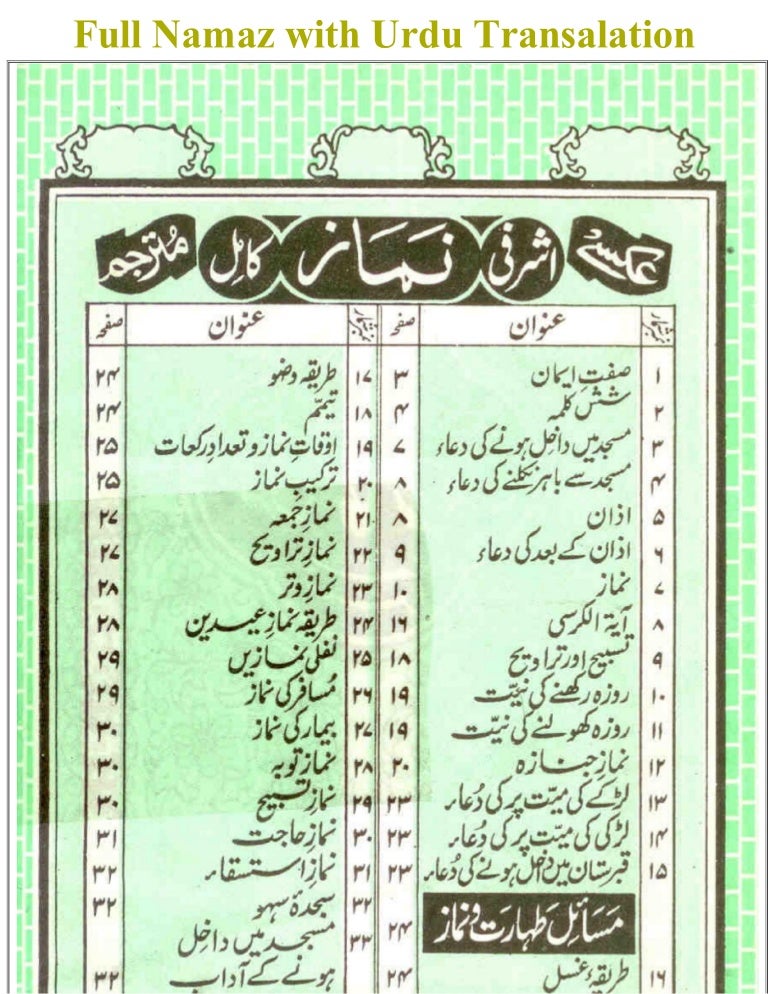 Full Namaz with Urdu Transalation
عکسی اشرفی نماز کامل مترجم
نمبر شمار عنوان صفحہ
۱ صفتِ ایمان ۳
۲ شش کلمہ ۴
۳ مسجد میں داخل ہونے کی دعاء ۷
۴ مسجد سے باہر نکلنے کی دعاء ۸
۵ اذان ۸
۶ اذان کے بعد کی دعاء ۹
۷ نماز ۱۰
۸ آیۃ الکرسی ۱۶
۹ تسبیح اور تراویح ۱۸
۱۰ روزہ رکھنے کی نیّت ۱۹
۱۱ روزہ کھولنے کی نیّت ۱۹
۱۲ نمازِ جنازہ ۲۰
۱۳ لڑکے کی میّت پر کی دُعاء ۲۳
۱۴ لڑکی کی میّت پر کی دُعاء ۲۳
۱۵ قبرستان میں داخل ہونے کی دُعاء ۲۳
مَسَائِل طَہارت و نماز ۲۴
۱۶ طریقۂ غسل ۲۴
نمبر شمار عنوان صفحہ
۱۷ طریقہ وضو ۲۴
۱۸ تیمّم ۲۴
۱۹ اوقاتِ نماز و تعداد رکعات ۲۵
۲۰ ترکیبِ نماز ۲۵
۲۱ نمازِ جمعہ ۲۷
۲۲ نمازِ تراویح ۲۷
۲۳ نمازِ وتر ۲۸
۲۴ طریقہ نمازِ عیدین ۲۸
۲۵ نفلی نمازیں ۲۹
۲۶ مُسافر کی نماز ۲۹
۲۷ بیمار کی نماز ۳۰
۲۸ نمازِ توبہ ۳۰
۲۹ نمازِ تسبیح ۳۰
۳۰ نمازِ حاجت ۳۱
۳۱ نمازِ استسقاء ۳۲
۳۲ سجدۂ سہو ۳۲
۳۳ مسجد میں داخل
ہونے کے آداب ۳۲